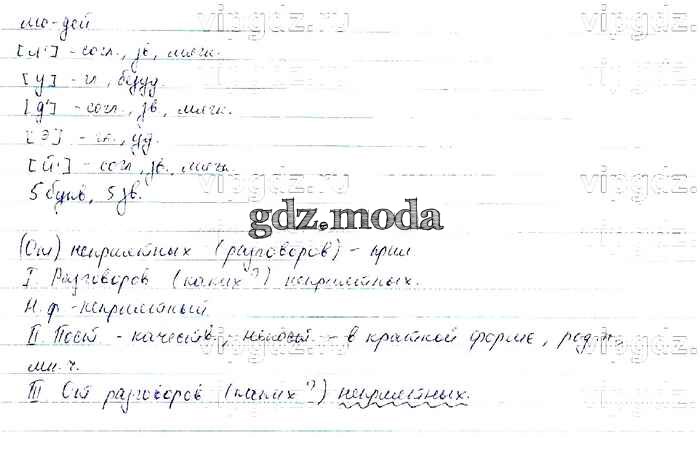 vipgdz.ru
лю-дей
[л'] - согл., зв., мягк.
[у] - гл., безуд.
[д'] - согл., зв., мягк.
[э] - гл., уд.
[й'] - согл., зв., мягк.
5 букв, 5 зв.
gdz.moda
(От) неприятных (разговоров) - прил
I Разговоров (каких?) неприятных.
Н. ф - неприятный
II Пост - качеств., непост - в краткой форме, род. п.,
мн. ч.
III От разговоров (каких?) неприятных.